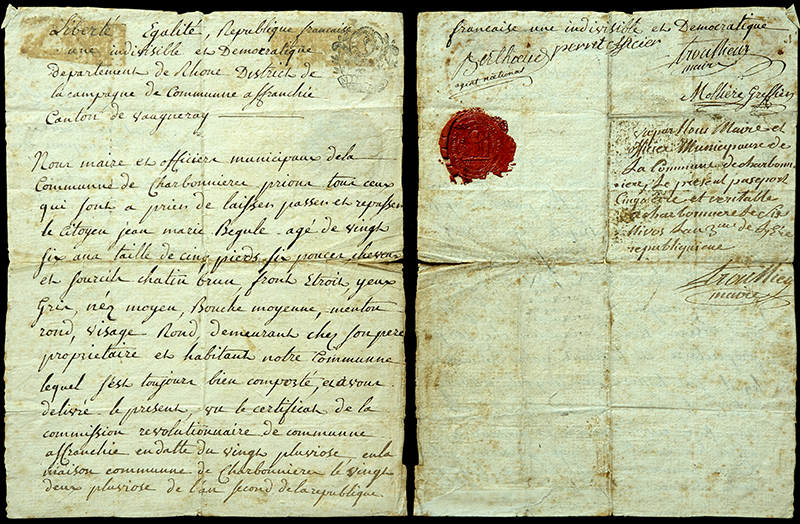 Liberté Egalité, Republique francaise
une indivisible et Democratique
departement de Rhone District de
la campagne de Commune affranchie
Canton de Vaugneray
Nous maire et officiers municipaux de la
Commune de Charbonniere prions tous ceux
qui sont a priers de laisser passer et repasser
le Citoyen jean marie Begule agé de vingt
six ans taille de cinq pieds six pouces cheveux
et sourcils chatin brun, front Etroit, yeux
Gris, néz moyen, Bouche moyenne, menton
rond, visage Rond, demeurant chez son pere
proprietaire et habitant notre Commune
lequel s'est toujours bien comporté, et avons
délivré le present, vu le certificat de la
commission revolutionnaire de commune
affranchie en datte du vingt pluviose, en la
maison commune de Charbonniere le vingt
deux pluviose de l'an second de la republique
francaise une indivisible et Democratique
Berthoud officier
agent national
Troullieux
maire
Moliere Greffier
Vu par Nous Maire et
officier Municipaux de
La Commune de charbon-
niere, Le présent paseport
et veritable
a charbonniere le
Nivos Lan 3me de
republiquene
Troullieux
maire